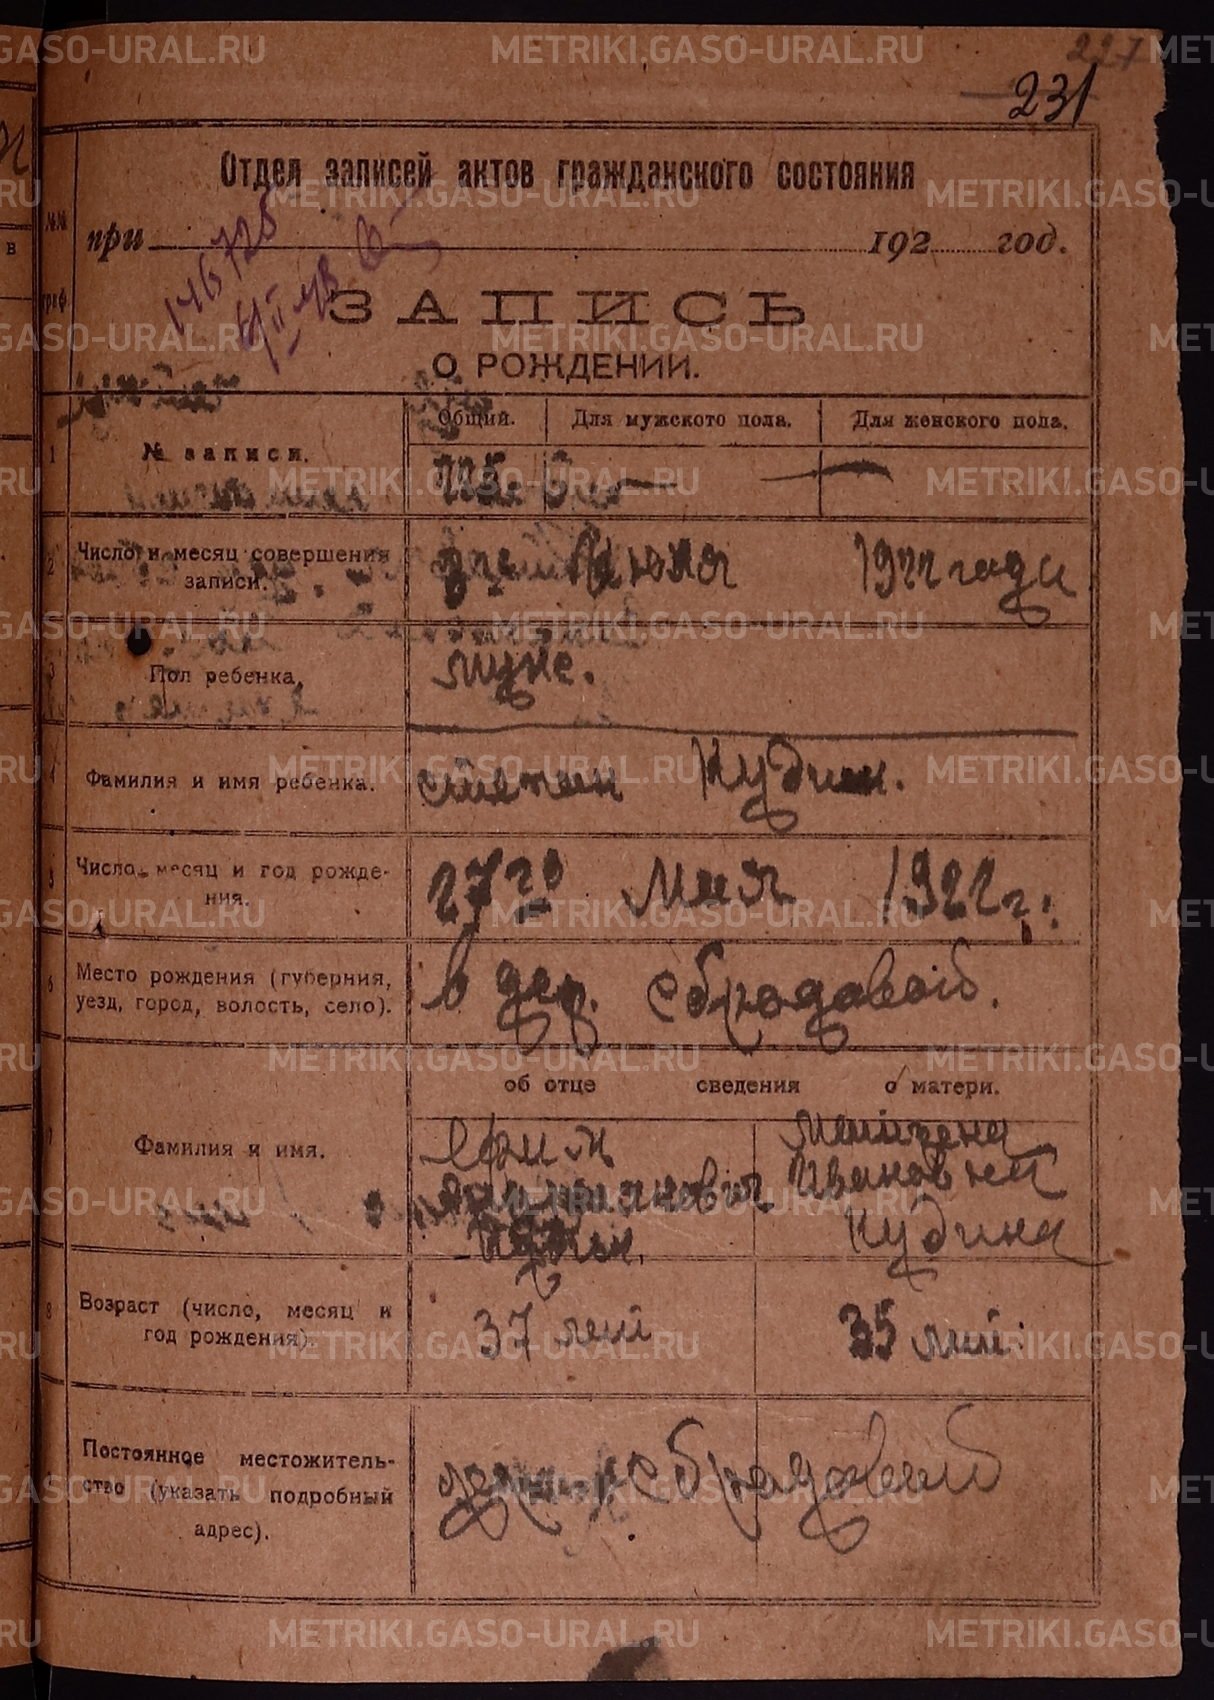 227
231
Отдел записей актов гражданского состояния
№№ граф.
при 192 год.
146725
ЗАПИСЬ
О РОЖДЕНИИ.
Общий. Для мужского пола. Для женского пола.
1 № записи.
2 Число и месяц совершения записи. Июля 1922 года
3 Пол ребенка. муже.
4 Фамилия и имя ребенка. степан Кудин.
5 Число, месяц и год рождения. 27го Мая 1922 г.
6 Место рождения (губерния, уезд, город, волость, село). в дер. сбродовой.
об отце сведения о матери.
7 Фамилия и имя. Ефим Кудин. Матрена Ивановна Кудина
8 Возраст (число, месяц и год рождения). 37 лет 35 лет.
Постоянное местожительство (указать подробный адрес). сбродовой
METRIKI.GASO-URAL.RU